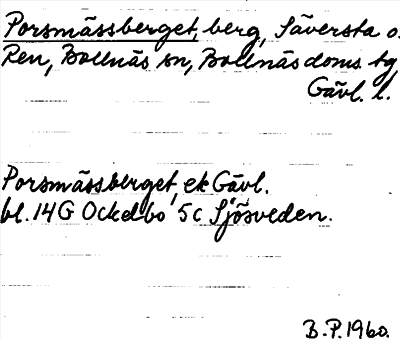 Porsmässberget, berg, Säversta o.
Ren, Bollnäs sn, Bollnäs doms. tg,
Gävl. l.
Porsmässberget, ek Gävl.
bl. 14G Ockelbo 5c Sjösveden.
B.P. 1960.